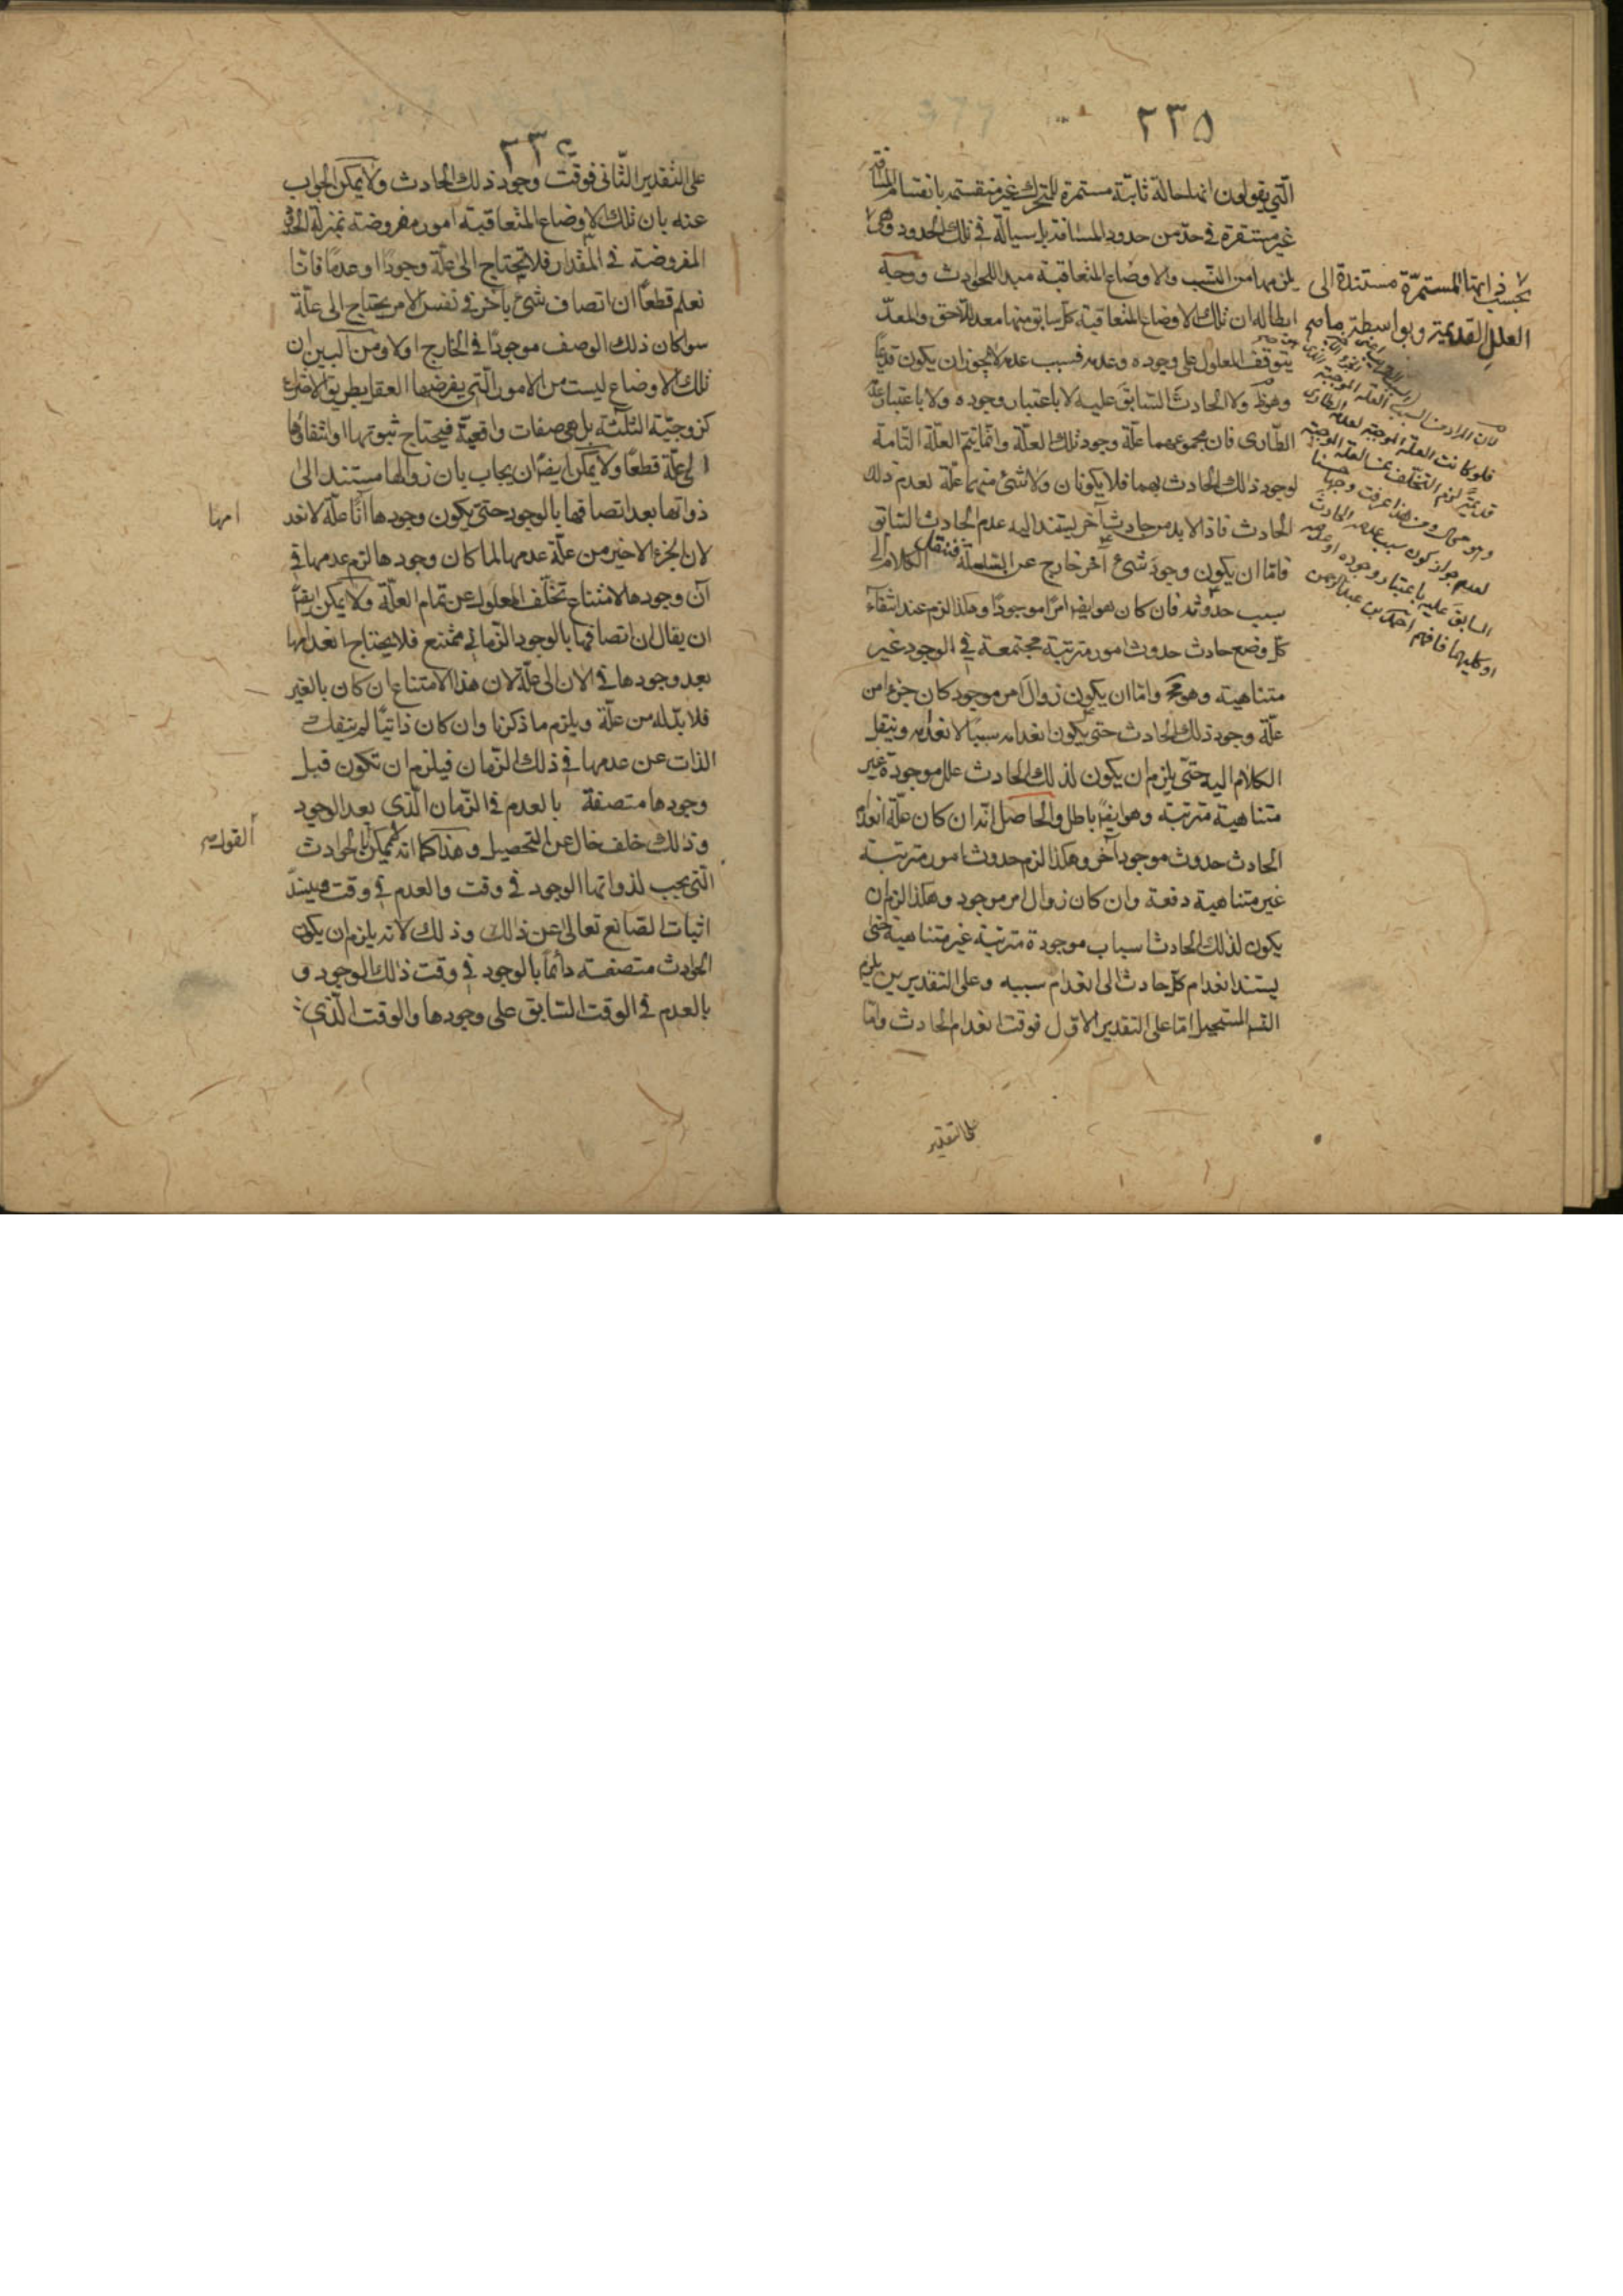 ٢٣٥
الّتي يقولون انها حالة ثابتة مستمرة للمتحرك غير منقسمة بانقسام المسافة
غير مستقرة في حدّ من حدود المسافة بل سيالة في تلك الحدود وهي
يلزمها من النسب والاوضاع المتعاقبة مبدا للحوادث ووجه
ابطاله ان تلك الاوضاع المتعاقبة كل سابق منها معد للاحق والمعدّ
يتوقف المعلول على وجوده وعدمه فسبب عدمه لا يجوز ان يكون قديمًا
وهو ظ ولا الحادث السابق عليه لا باعتبار وجوده ولا باعتبار عدمه
الطاري فان مجموعهما علّة وجود تلك العلّة وانما يتم العلّة التامة
لوجود ذلك الحادث بهما فلا يكونان ولا شئ منهما علّة لعدم ذلك
الحادث فاذا لا بد من حادث آخر ليستند اليه عدم الحادث السابق
فامّا ان يكون وجود شئ آخر خارج عن السلسلة فننقل الكلام الى
سبب حدوثه فان كان هو ايضا امرًا موجودًا وهكذا لزم عند انتفآء
كل وضع حادث حدوث امور مترتبة مجتمعة في الوجود غير
متناهية وهو مح وامّا ان يكون زوال امر موجود كان جزءا من
علّة وجود ذلك الحادث حتى يكون انعدامه سببًا لانعدامه وننقل
الكلام اليه حتّى يلزم ان يكون لذلك الحادث علل موجودة غير
متناهية مترتبة وهو ايضًا باطل والحاصل انّه ان كان علّة انعدام
الحادث حدوث موجود آخر وهكذا لزم حدوث امور مترتبة
غير متناهية دفعة وان كان زوال امر موجود وهكذا لزم ان
يكون لذلك الحادث اسباب موجودة مترتبة غير متناهية حتى
يستند انعدام كل حادث الى انعدام سببه وعلى التقديرين يلزم
التسـ المستحيل امّا على التقدير الاوّل فوقت انعدام الحادث وامّا
على التقدير
بحسب ذاتها المستمرّة مستندة الى
العلل القديمة وبواسطة ما صح
لان المراد من السبب العلة الموجبة
فلو كانت العلة الموجبة لعدمه الطاري
قديمة لزم التخلف عن العلة الموجبة
وهو محال ومن هذا عرفت وجه
لعدم جواز كون سبب عدمه الحادث
السابق عليه باعتبار وجوده او عدمه
او كليهما فافهم احمد بن عبد الرحمن
٢٣٦
على التقدير الثّاني فوقت وجود ذلك الحادث ولا يمكن الجواب
عنه بان تلك الاوضاع المتعاقبة امور مفروضة بمنزلة الحدود
المفروضة في المقدار فلا يحتاج الى علّة وجودًا وعدمًا فانّا
نعلم قطعًا ان اتصاف شئ بآخر في نفس الامر يحتاج الى علّة
سوا كان ذلك الوصف موجودًا في الخارج اولا ومن البين ان
تلك الاوضاع ليست من الامور الّتي يفرضها العقل بطريق الاختراع
كزوجيّة الثلثة بل هي صفات واقعيّة فيحتاج ثبوتها وانتفاؤها
الى علّة قطعًا ولا يمكن ايضًا ان يجاب بان زوالها مستند الى
ذواتها بعد اتصافها بالوجود حتى يكون وجودها آنًا علّة لانعد
امها
لان الجزء الاخير من علّة عدمها لما كان وجودها لزم عدمها في
آن وجودها لامتناع تخلّف المعلول عن تمام العلّة ولا يمكن ايضًا
ان يقال ان اتصافها بالوجود الزماني ممتنع فلا يحتاج انعدامها
بعد وجودها في الان الى علّة لان هذا الامتناع ان كان بالغير
فلا بدّ له من علّة ويلزم ما ذكرنا وان كان ذاتيًا لم ينفك
الذات عن عدمها في ذلك الزمان فيلزم ان تكون قبل
وجودها متصفة بالعدم في الزمان الّذي بعد الوجود
وذلك خلف خال عن التحصيل وهذا كما انه لا يمكن بالحوادث
القول
الّتي يجب لذواتها الوجود في وقت والعدم في وقت فينسدّ
اثبات الصانع تعالى عن ذلك وذلك لانه يلزم ان يكون
الحوادث متصفة دائمًا بالوجود في وقت ذلك الوجود و
بالعدم في الوقت السابق على وجودها والوقت الّذي